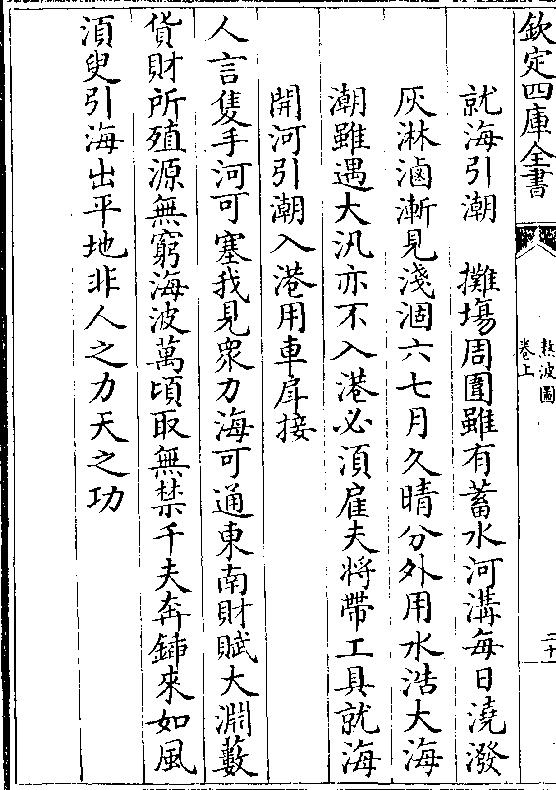 欽定四庫全書
熬波圖
卷上
二十
就海引潮　攤場周圍雖有蓄水河溝每日澆潑
灰淋滷漸見淺涸六七月久晴分外用水浩大海
潮雖遇大汛亦不入港必湏雇夫將帶工具就海
開河引潮入港用車戽接
人言隻手河可塞我見衆力海可通東南財賦大淵藪
貨財所殖源無窮海波萬頃取無禁千夫奔鍤來如風
湏臾引海出平地非人之力天之功